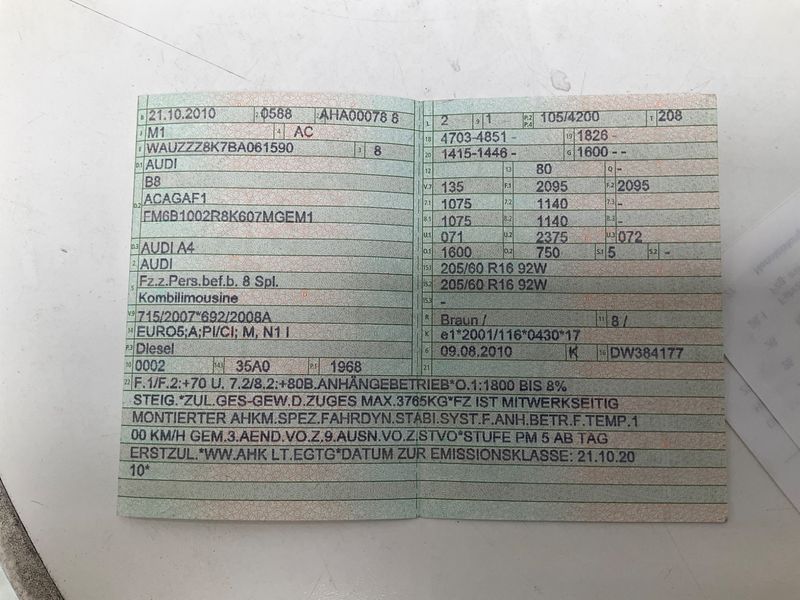 B 21.10.2010 2.1 0588 2.2 AHA00078 8
J M1 4 AC
E WAUZZZ8K7BA061590 3 8
D.1 AUDI
B8
D.2 ACAGAF1
FM6B1002R8K607MGEM1
D.3 AUDI A4
2 AUDI
5 Fz.z.Pers.bef.b. 8 Spl.
Kombilimousine
V.9 715/2007*692/2008A
14 EURO5;A;PI/CI; M, N1 I
P.3 Diesel
10 0002 14.1 35A0 P.1 1968
L 2 9 1 P.2 P.4 105/4200 T 208
18 4703-4851 - 19 1826 -
20 1415-1446 - G 1600 - -
12 13 80 Q -
V.7 135 F.1 2095 F.2 2095
7.1 1075 7.2 1140 7.3 -
8.1 1075 8.2 1140 8.3 -
U.1 071 U.2 2375 U.3 072
O.1 1600 O.2 750 S.1 5 S.2 -
15.1 205/60 R16 92W
15.2 205/60 R16 92W
15.3 -
R Braun / 11 8 /
K e1*2001/116*0430*17
6 09.08.2010 17 K 16 DW384177
21
22 F.1/F.2:+70 U. 7.2/8.2:+80B.ANHÄNGEBETRIEB*O.1:1800 BIS 8%
STEIG.*ZUL.GES-GEW.D.ZUGES MAX.3765KG*FZ IST MITWERKSEITIG
MONTIERTER AHKM.SPEZ.FAHRDYN.STABI.SYST.F.ANH.BETR.F.TEMP.1
00 KM/H GEM.3.AEND.VO.Z.9.AUSN.VO.Z.STVO*STUFE PM 5 AB TAG
ERSTZUL.*WW.AHK LT.EGTG*DATUM ZUR EMISSIONSKLASSE: 21.10.20
10*